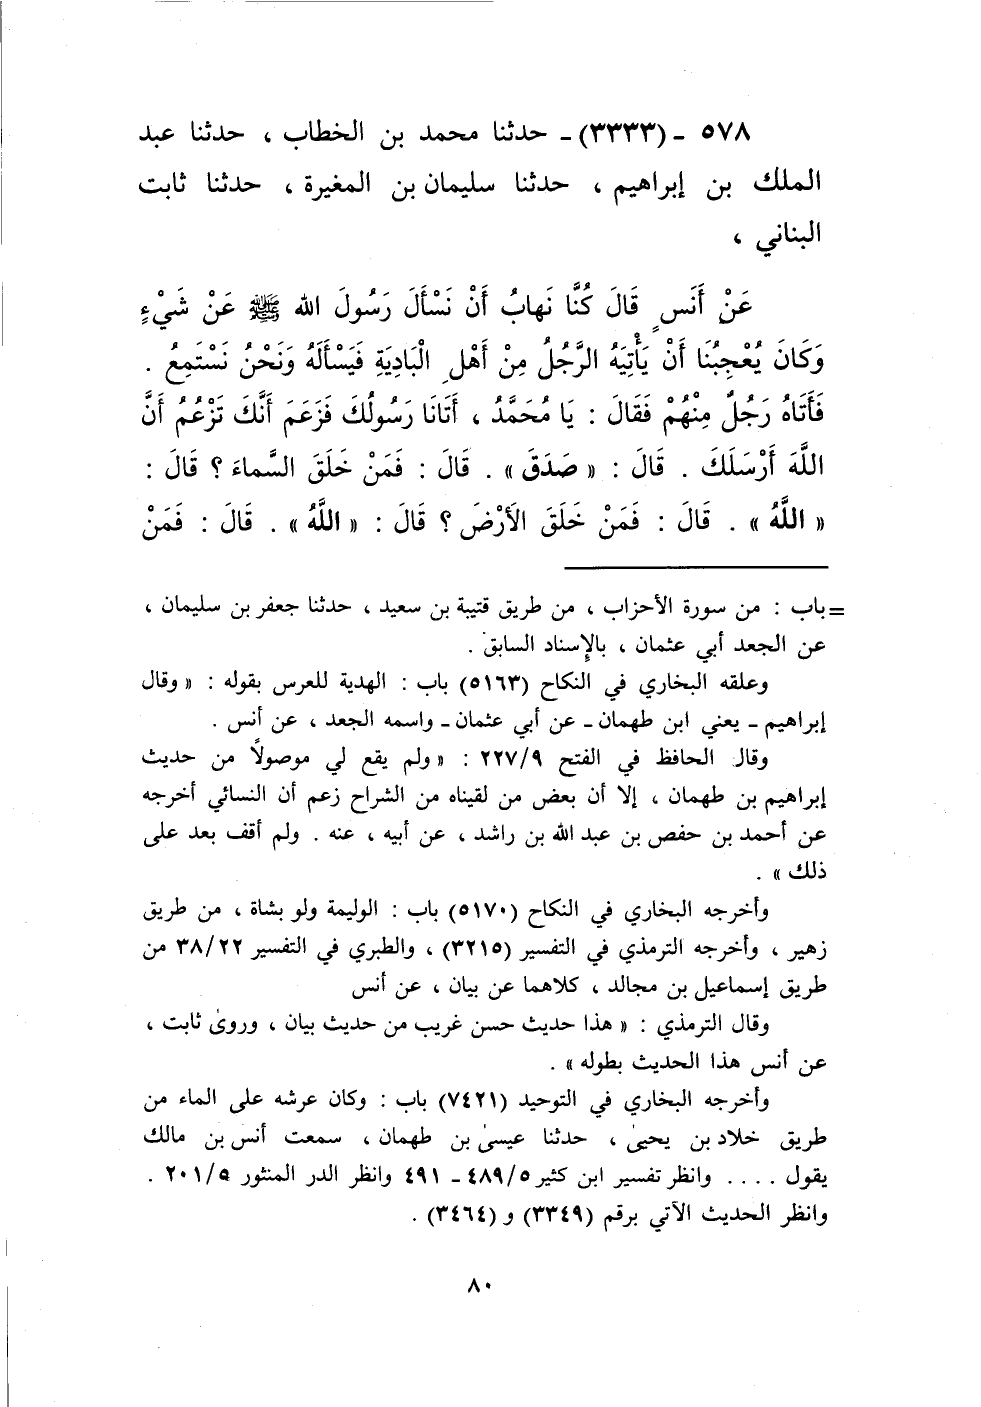 ٥٧٨ ـ (٣٣٣٣) ـ حدثنا محمد بن الخطاب ، حدثنا عبد
الملك بن إبراهيم ، حدثنا سليمان بن المغيرة ، حدثنا ثابت
البناني ،
عَنْ أَنَسٍ قَالَ كُنَّا نَهابُ أَنْ نَسْأَلَ رَسُولَ الله ﷺ عَنْ شَيْءٍ
وَكَانَ يُعْجِبُنَا أَنْ يَأْتِيَهُ الرَّجُلُ مِنْ أَهْلِ الْبَادِيَةِ فَيَسْأَلَهُ وَنَحْنُ نَسْتَمِعُ .
فَأَتَاهُ رَجُلٌ مِنْهُمْ فَقَالَ : يَا مُحَمَّدُ ، أَتَانَا رَسُولُكَ فَزَعَمَ أَنَّكَ تَزْعُمُ أَنَّ
اللَّهَ أَرْسَلَكَ . قَالَ : « صَدَقَ » . قَالَ : فَمَنْ خَلَقَ السَّماءَ ؟ قَالَ :
« اللَّهُ » . قَالَ : فَمَنْ خَلَقَ الأَرْضَ ؟ قَالَ : « اللَّهُ » . قَالَ : فَمَنْ
= باب : من سورة الأحزاب ، من طريق قتيبة بن سعيد ، حدثنا جعفر بن سليمان ،
عن الجعد أبي عثمان ، بالإسناد السابق .
وعلقه البخاري في النكاح (٥١٦٣) باب : الهدية للعرس بقوله : « وقال
إبراهيم ـ يعني ابن طهمان ـ عن أبي عثمان ـ واسمه الجعد ، عن أنس .
وقال الحافظ في الفتح ٢٢٧/٩ : « ولم يقع لي موصولاً من حديث
إبراهيم بن طهمان ، إلا أن بعض من لقيناه من الشراح زعم أن النسائي أخرجه
عن أحمد بن حفص بن عبد الله بن راشد ، عن أبيه ، عنه . ولم أقف بعد على
ذلك » .
وأخرجه البخاري في النكاح (٥١٧٠) باب : الوليمة ولو بشاة ، من طريق
زهير ، وأخرجه الترمذي في التفسير (٣٢١٥) ، والطبري في التفسير ٣٨/٢٢ من
طريق إسماعيل بن مجالد ، كلاهما عن بيان ، عن أنس
وقال الترمذي : « هذا حديث حسن غريب من حديث بيان ، وروىٰ ثابت ،
عن أنس هذا الحديث بطوله » .
وأخرجه البخاري في التوحيد (٧٤٢١) باب : وكان عرشه على الماء من
طريق خلاد بن يحيىٰ ، حدثنا عيسىٰ بن طهمان ، سمعت أنس بن مالك
يقول .... وانظر تفسير ابن كثير ٤٨٩/٥ ـ ٤٩١ وانظر الدر المنثور ٢٠١/٥ .
وانظر الحديث الآتي برقم (٣٣٤٩) و (٣٤٦٤) .
٨٠